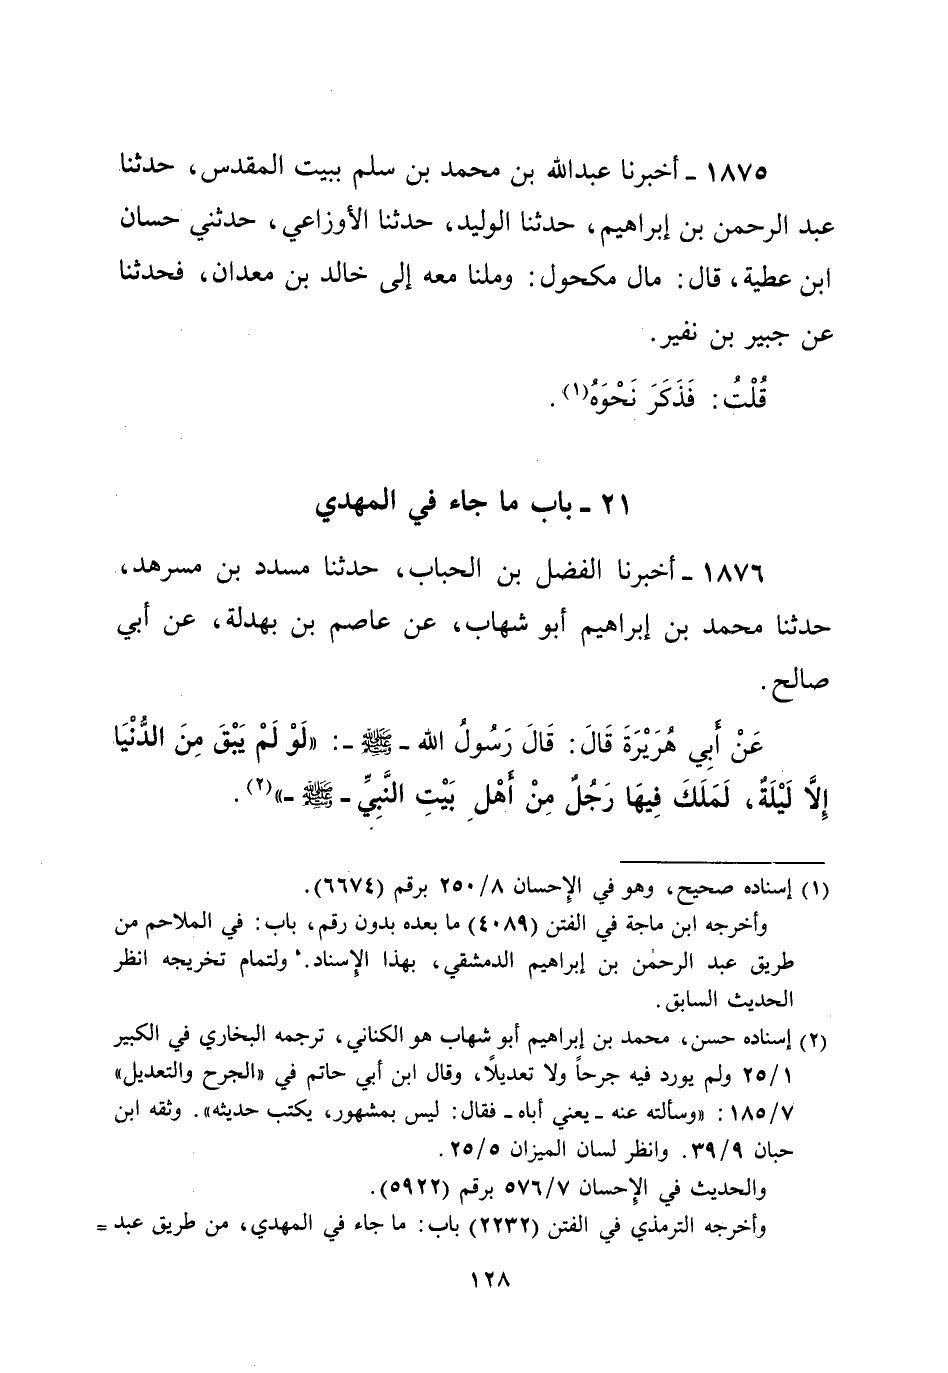 ١٨٧٥ - أخبرنا عبدالله بن محمد بن سلم ببيت المقدس، حدثنا
عبد الرحمن بن إبراهيم، حدثنا الوليد، حدثنا الأوزاعي، حدثني حسان
ابن عطية، قال: مال مكحول: وملنا معه إلى خالد بن معدان، فحدثنا
عن جبير بن نفير.
قُلْتُ: فَذَكَرَ نَحْوَهُ(١).
٢١ - باب ما جاء في المهدي
١٨٧٦ - أخبرنا الفضل بن الحباب، حدثنا مسدد بن مسرهد،
حدثنا محمد بن إبراهيم أبو شهاب، عن عاصم بن بهدلة، عن أبي
صالح.
عَنْ أَبِي هُرَيْرَةَ قَالَ: قَالَ رَسُولُ الله - ﷺ -: «لَوْ لَمْ يَبْقَ مِنَ الدُّنْيَا
إِلَّا لَيْلَةٌ، لَمَلَكَ فِيهَا رَجُلٌ مِنْ أَهْلِ بَيْتِ النَّبِيِّ - ﷺ -»(٢).
(١) إسناده صحيح، وهو في الإحسان ٢٥٠/٨ برقم (٦٦٧٤).
وأخرجه ابن ماجة في الفتن (٤٠٨٩) ما بعده بدون رقم، باب: في الملاحم من
طريق عبد الرحمٰن بن إبراهيم الدمشقي، بهذا الإسناد. ولتمام تخريجه انظر
الحديث السابق.
(٢) إسناده حسن، محمد بن إبراهيم أبو شهاب هو الكناني، ترجمه البخاري في الكبير
٢٥/١ ولم يورد فيه جرحاً ولا تعديلًا، وقال ابن أبي حاتم في «الجرح والتعديل»
١٨٥/٧: «وسألته عنه - يعني أباه - فقال: ليس بمشهور، يكتب حديثه». وثقه ابن
حبان ٣٩/٩. وانظر لسان الميزان ٢٥/٥.
والحديث في الإحسان ٥٧٦/٧ برقم (٥٩٢٢).
وأخرجه الترمذي في الفتن (٢٢٣٢) باب: ما جاء في المهدي، من طريق عبد =
١٢٨